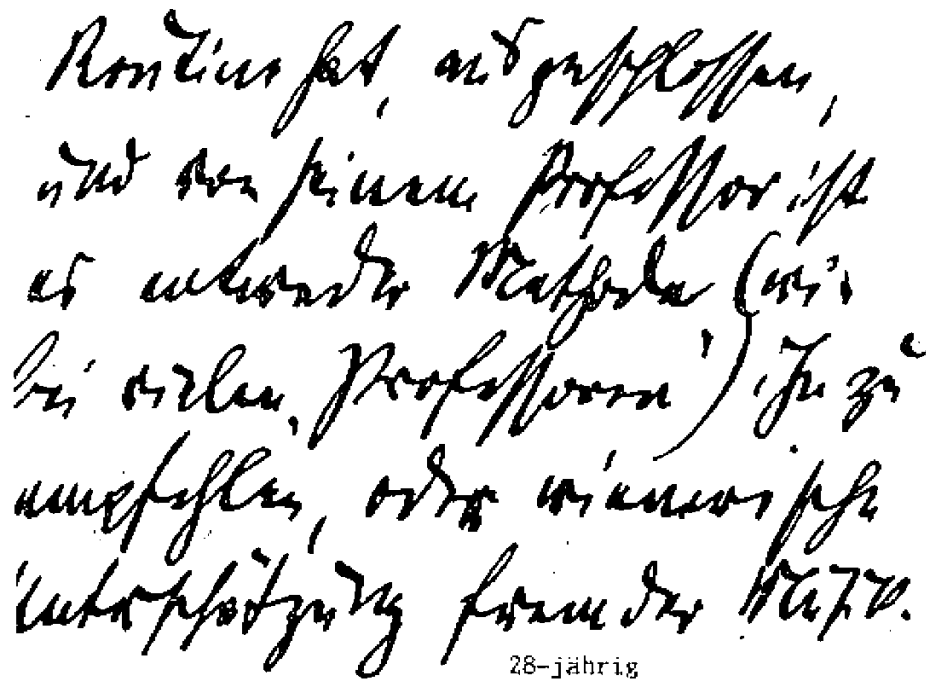 Routine hat, ausgeschlossen,
und von seinem Professor ist
es entweder Methode (wie
bei vielen „Professoren") ihn zu
empfehlen, oder wienerische
Unterschätzung fremder Mühe.
28-jährig